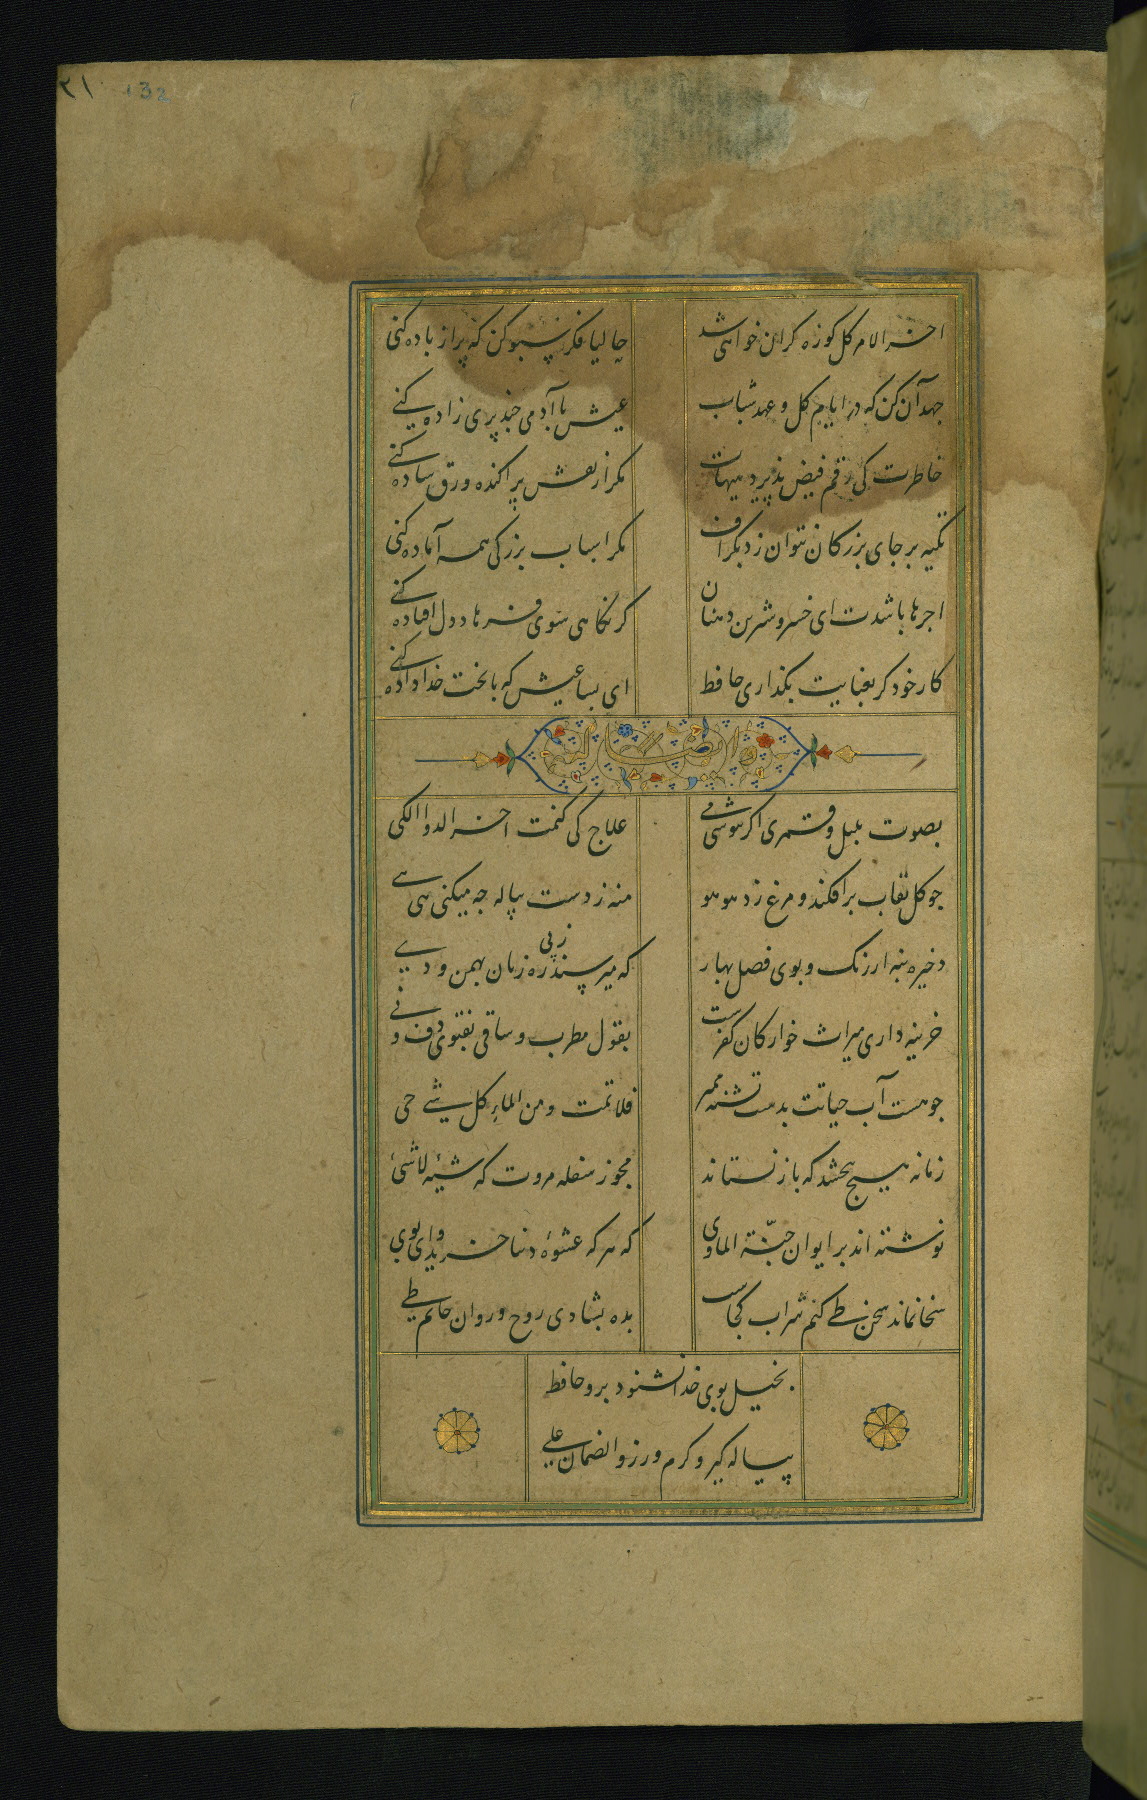 ۲۱ 132
آخر الامر گل کوزه گران خواهی شد
حالیا فکر سبو کن که پر از باده کنی
جهد آن کن که در ایام گل و عهد شباب
عیش با آدمی چند پری زاده کنی
خاطرت کی رقم فیض پذیرد هیهات
مگر از نقش پراکنده ورق ساده کنی
تکیه بر جای بزرگان نتوان زد بگزاف
مگر اسباب بزرگی همه آماده کنی
اجرها باشدت ای خسرو شیرین دهنان
گر نگاهی سوی فرهاد دل افتاده کنی
کار خود گر بعنایت بگذاری حافظ
ای بسا عیش که با بخت خداداده کنی
وله ایضا
بصوت بلبل و قمری اگر ننوشی می
علاج کی کنمت آخر الدوا الکی
چو گل نقاب برافکند و مرغ زد هو هو
منه ز دست پیاله چه میکنی هی هی
ذخیره بنه از رنگ و بوی فصل بهار
که میرسند ز پی ره زنان بهمن و دی
خزینه داری میراث خوارگان کفرست
بقول مطرب و ساقی بفتوی دف و نی
چو هست آب حیاتت بدست تشنه ممیر
فلا تمت و من الماء کل شیئ حی
زمانه هیچ نبخشد که باز نستاند
مجوز سفله مروت که شیئه لا شیئ
نوشته اند بر ایوان جنّة الماوی
که هر که عشوهٔ دنیا خرید وای بوی
سخا نماند سخن طی کنم شراب کجاست
بده بشادی روح و روان حاتم طی
بخیل بوی خدا نشنود برو حافظ
پیاله گیر و کرم ورز و الضمان علی